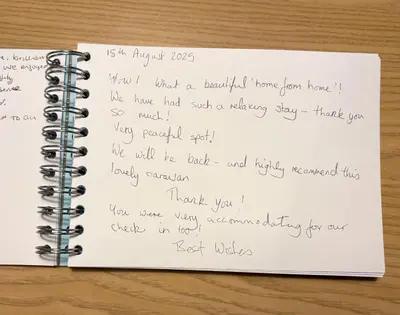 15th August 2025
Wow! What a beautiful 'home from home'!
We have had such a relaxing stay - thank you
so much!
Very peaceful spot!
We will be back - and highly recommend this
lovely caravan
Thank you!
You were very accommodating for our
check in too!
Best Wishes